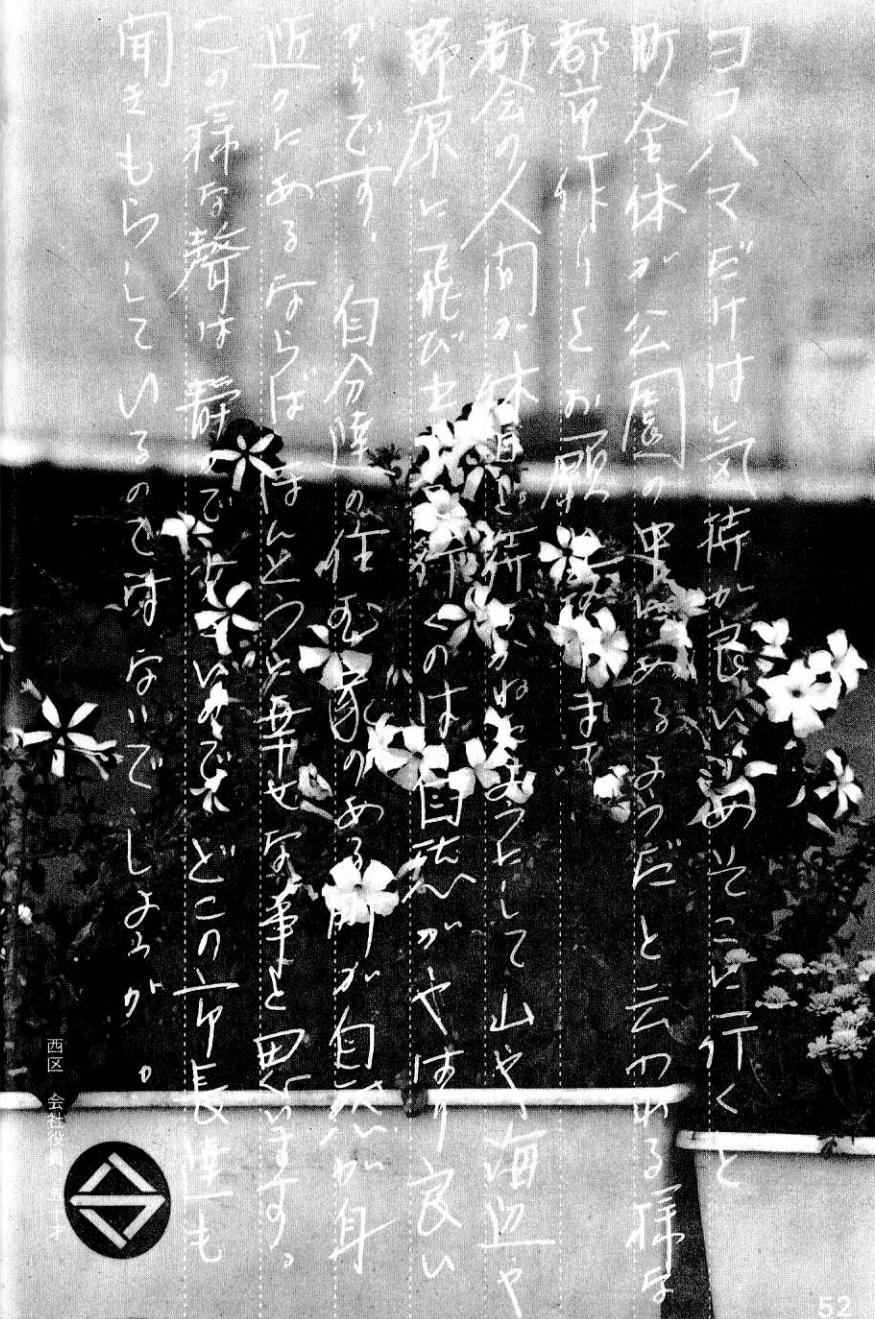 ヨコハマだけは気持が良い なあ そこに行くと
町全体が公園の中にあるようだと云われる様な
都市作りをお願い致します
都会の人間が休日を待ちかねたようにして山や海辺や
野原に飛び出して行くのは自然がやはり良い
からです。自分達の住む家のある所が自然が身
近かにあるならばほんとうに幸せな事と思います。
この様な聲は静かで小さいのでどこの市長達も
聞きもらしているのではないでしょうか。
西区 会社役員
52